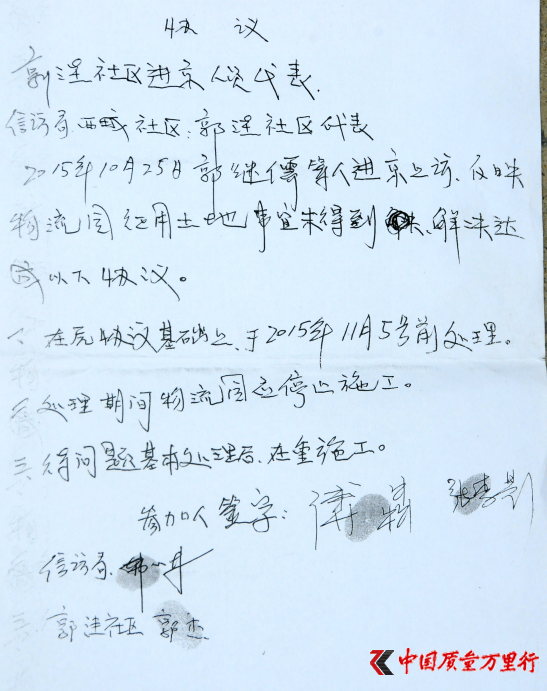 协 议
郭洼社区进京人员代表.
信访局.西城社区.郭洼社区代表
2015年10月25日郭继儒等人进京上访.反映
物流园征用土地事宜未得到解决达
成以下协议。
一、在原协议基础上、于2015年11月5号前处理。
二、处理期间物流园应停止施工。
三、待问题基本处理后、在重施工。
参加人签字:
信访局
郭洼社区 郭杰
中国质量万里行